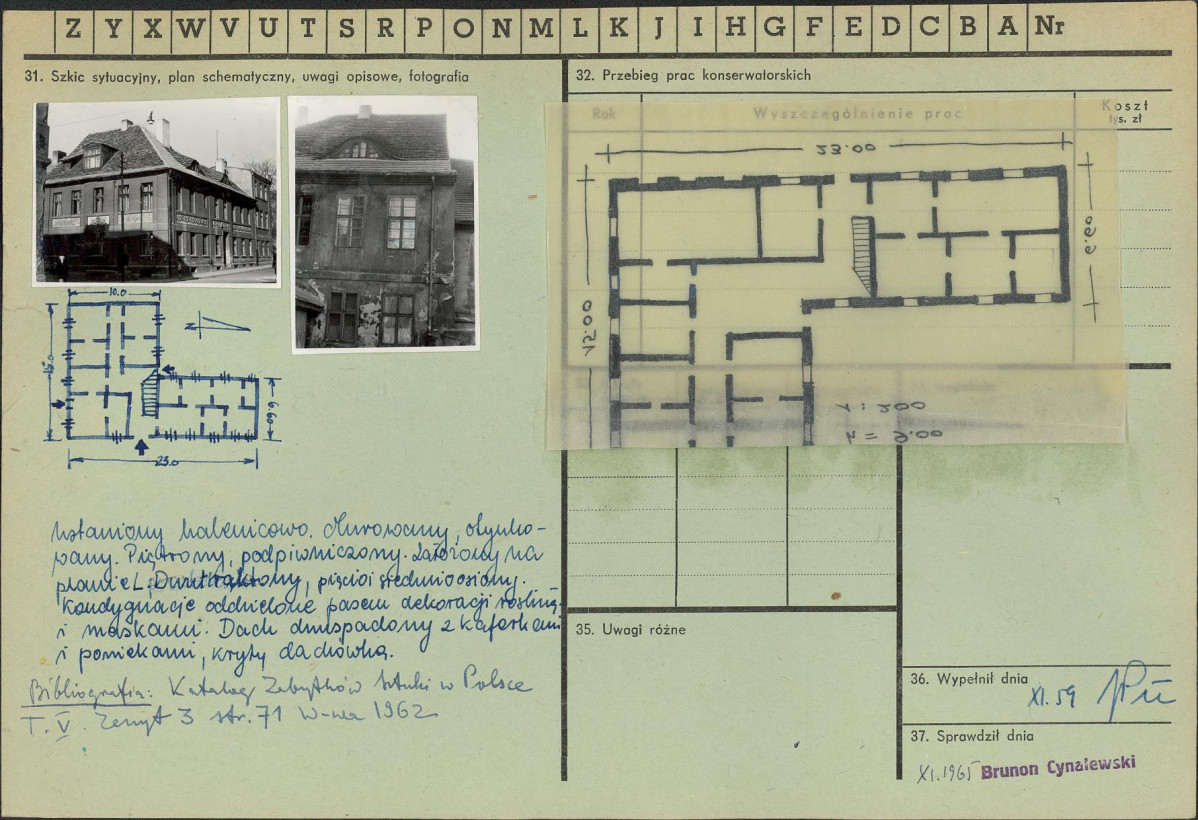 Z Y X W V U T S R P O N M L K J I H G F E D C B A Nr
31. Szkic sytuacyjny, plan schematyczny, uwagi opisowe, fotografia
10.0
15.0
N
6.60
23.0
Ustawiony kalenicowo. Murowany, otynko-
wany. Piętrowy, podpiwniczony. Założony na
planie L. Dwutraktowy, pięcio i siedmioosiowy.
Kondygnacje oddzielone pasem dekoracji roślin.
i maskami. Dach dwuspadowy z kaferkami
i powiekami, kryty dachówką.
Bibliografia: Katalog Zabytków Sztuki w Polsce
T. V. Zeszyt 3 str. 71 W-wa 1962
32. Przebieg prac konserwatorskich
Rok
Wyszczególnienie prac
Koszt
tys. zł
23.00
6.60
15.00
1 : 200
h = 9.00
35. Uwagi różne
36. Wypełnił dnia
XI. 59
37. Sprawdził dnia
XI.1965 Brunon Cynalewski